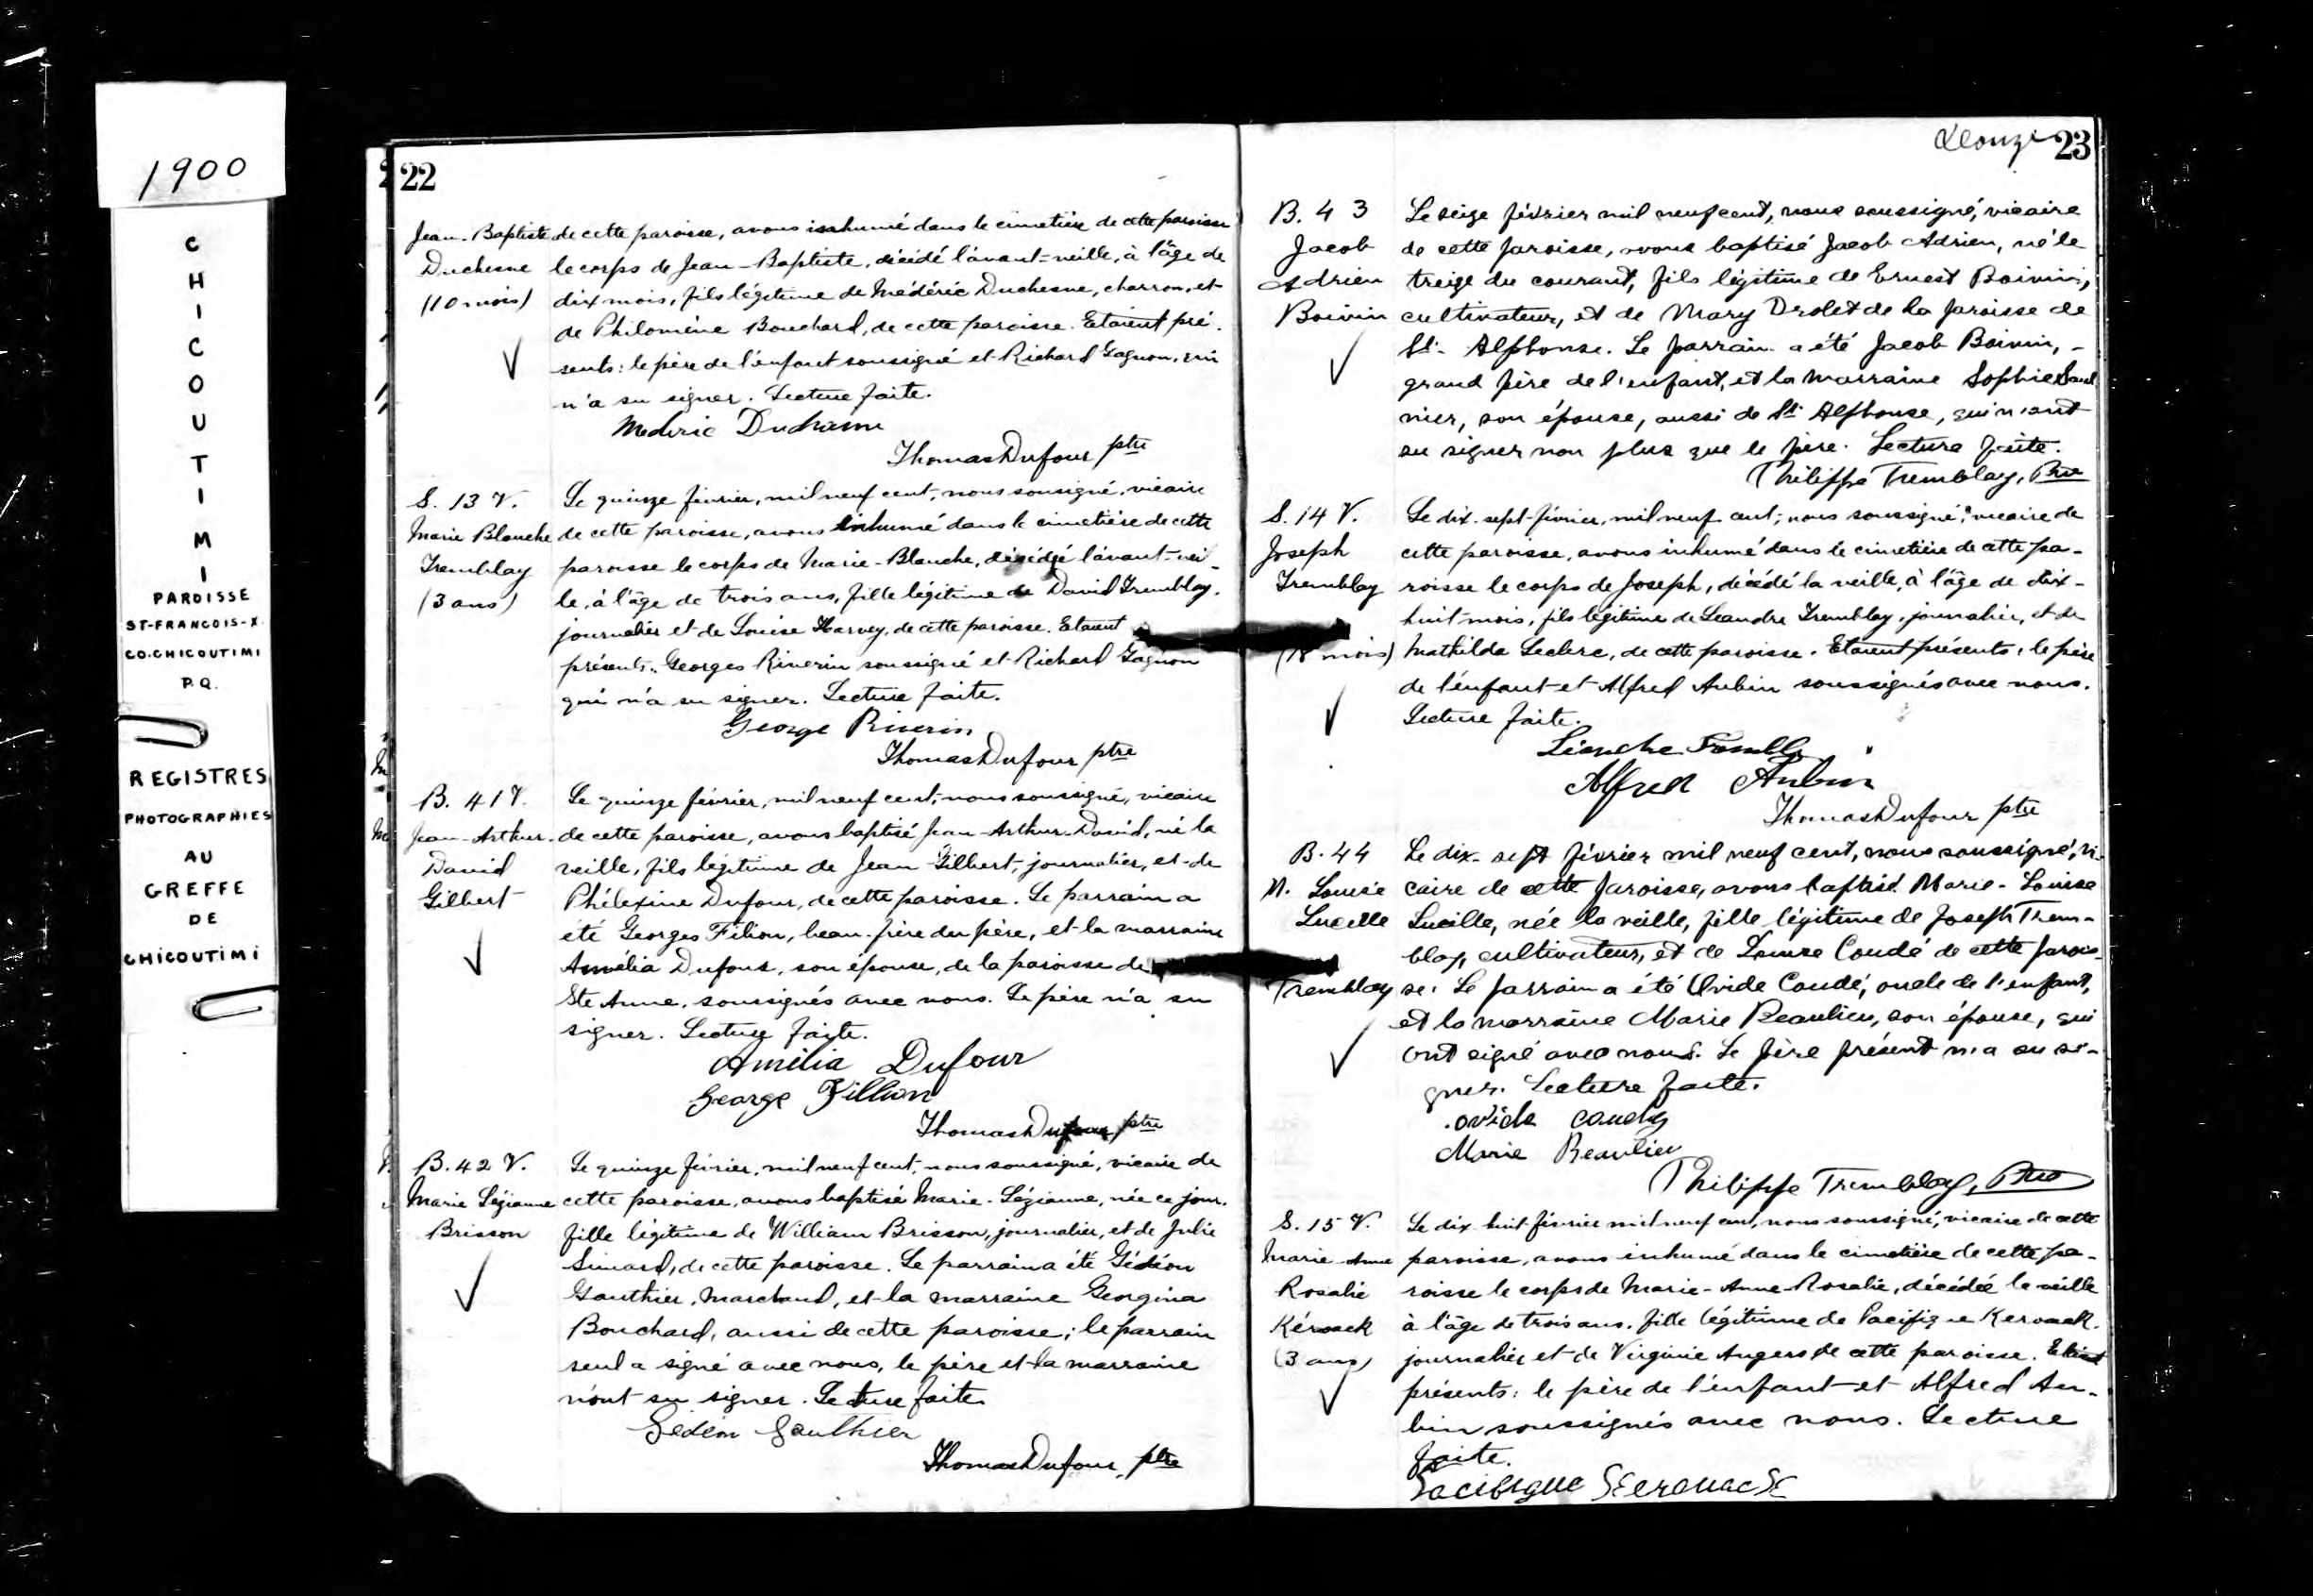 1900
CHICOUTIMI
PAROISSE
ST-FRANCOIS-X.
CO. CHICOUTIMI
P.Q.
REGISTRES
PHOTOGRAPHIES
AU
GREFFE
DE
CHICOUTIMI
22
Jean-Baptiste de cette paroisse, avons inhumé dans le cimetière de cette paroisse
Duchesne le corps de Jean-Baptiste, décédé l'avant-veille, à l'âge de
(10 mois) dix mois, fils légitime de Médéric Duchesne, charron, et
de Philomène Bouchard, de cette paroisse. Etaient pré-
sents: le père de l'enfant soussigné et Richard Gagnon, qui
n'a su signer. Lecture faite.
Mederic Duchesne
Thomas Dufour ptre
S. 13 V. Le quinze février, mil neuf cent, nous soussigné, vicaire
Marie Blanche de cette paroisse, avons inhumé dans le cimetière de cette
Tremblay paroisse le corps de Marie-Blanche, décédée l'avant-veil-
(3 ans) le, à l'âge de trois ans, fille légitime de David Tremblay,
journalier et de Louise Harvey, de cette paroisse. Etaient
présents: Georges Riverin soussigné et Richard Gagnon
qui n'a su signer. Lecture faite.
George Riverin
Thomas Dufour ptre
B. 41 V. Le quinze février, mil neuf cent, nous soussigné, vicaire
Jean-Arthur- de cette paroisse, avons baptisé Jean-Arthur-David, né la
David veille, fils légitime de Jean Gilbert, journalier, et de
Gilbert Philexine Dufour, de cette paroisse. Le parrain a
été Georges Filion, beau-frère du père, et la marraine
Amélia Dufour, son épouse, de la paroisse de
Ste Anne, soussignés avec nous. Le père n'a su
signer. Lecture faite.
Amilia Dufour
George Fillion
Thomas Dufour ptre
B. 42 V. Le quinze février, mil neuf cent, nous soussigné, vicaire de
Marie Légianne cette paroisse, avons baptisé Marie-Légianne, née ce jour,
Brisson fille légitime de William Brisson, journalier, et de Julie
Simard, de cette paroisse. Le parrain a été Gédéon
Gauthier, Marchand, et la marraine Georgina
Bouchard, aussi de cette paroisse; le parrain
seul a signé avec nous, le père et la marraine
n'ont su signer. Lecture faite
Gedéon Gauthier
Thomas Dufour, ptre
23
B. 43 Le seize février mil neuf cent, nous soussigné, vicaire
Jacob de cette paroisse, avons baptisé Jacob Adrien, né le
Adrien treize du courant, fils légitime de Ernest Boivin,
Boivin cultivateur, et de Mary Drolet de la paroisse de
St. Alphonse. Le parrain a été Jacob Boivin, -
grand père de l'enfant, et la marraine Sophie Saul
nier, son épouse, aussi de St. Alphonse, qui n'ont
su signer non plus que le père. Lecture faite.
Philippe Tremblay, Ptre
S. 14 V. Le dix-sept février, mil neuf cent, nous soussigné, vicaire de
Joseph cette paroisse, avons inhumé dans le cimetière de cette pa-
Tremblay roisse le corps de Joseph, décédé la veille, à l'âge de dix-
huit mois, fils légitime de Leandre Tremblay, journalier, et de
(18 mois) Mathilda Leclerc, de cette paroisse. Etaient présents, le père
de l'enfant et Alfred Aubin soussignés avec nous.
Lecture faite.
Alfred Aubin
Thomas Dufour ptre
B. 44 Le dix-sept février mil neuf cent, nous soussigné, vi-
M. Louise caire de cette paroisse, avons baptisé Marie-Louise
Lucille Lucille, née la veille, fille légitime de Joseph Trem-
blay, cultivateur, et de Louise Coudé de cette parois-
Tremblay se. Le parrain a été Ovide Coudé, oncle de l'enfant,
et la marraine Marie Beaulieu, son épouse, qui
ont signé avec nous. Le père présent n'a su si-
gner. Lecture faite.
Marie Beaulieu
Philippe Tremblay, Ptre
S. 15 V. Le dix-huit février mil neuf cent, nous soussigné, vicaire de cette
Marie-Anne paroisse, avons inhumé dans le cimetière de cette pa-
Rosalie roisse le corps de Marie-Anne-Rosalie, décédée la veille
Kérouack à l'âge de trois ans, fille légitime de Pacifique Kerouack,
(3 ans) journalier et de Virginie Angers de cette paroisse. Etaient
présents: le père de l'enfant et Alfred Au-
bin soussignés avec nous. Lecture
faite.